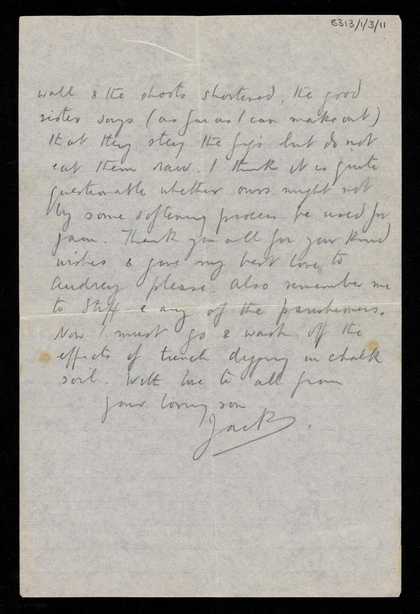 8313/1/3/11
wall & the shoots shortened, the good
sister says (as far as I can make out)
that they stew the figs but do not
eat them raw. I think it is quite
questionable whether ours might not
by some softening process be used for
jam. Thank you all for your kind
wishes & give my best love to
Audrey please. Also remember me
to Staff & any of the parishioners.
Now I must go & wash off the
effects of trench digging in chalk
soil. With love to all from
your loving son
Jack.